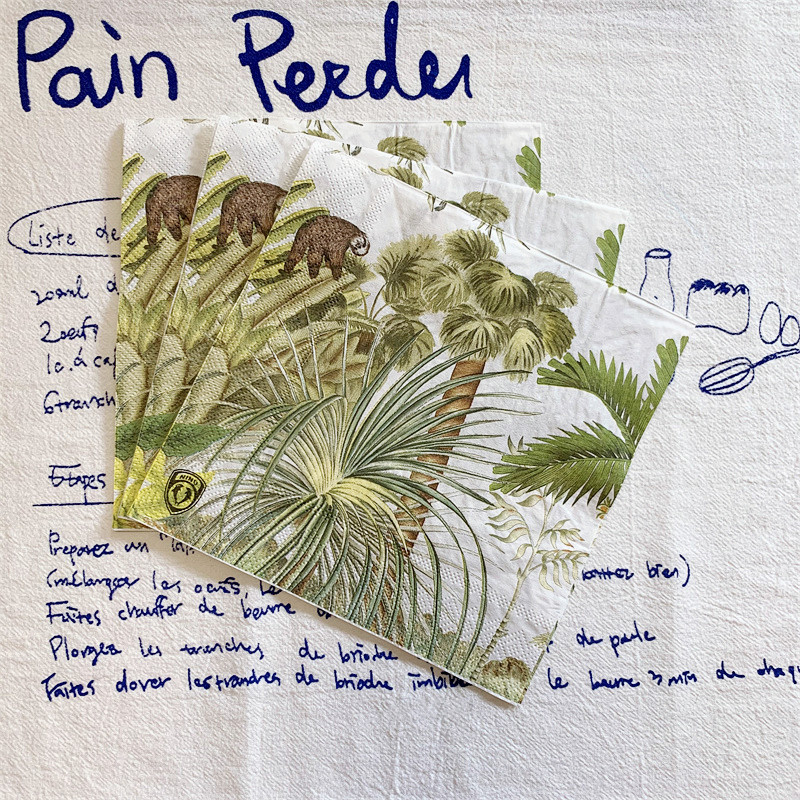 Pain Perdu
Liste de
200ml d
2oeufs
1c.à caf
6tranch
Etapes
Preparez un
(mélanger les oeufs, le bien)
Faites chauffer de beurre
Plongez les tranches de brioche de paele
Faites dorer les tranches de brioche imbibé le beurre 3 min de chaqu